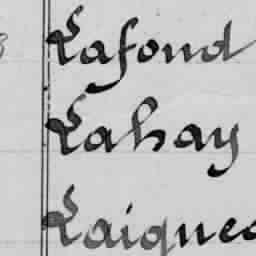 Lafond
Lahay
Laigne